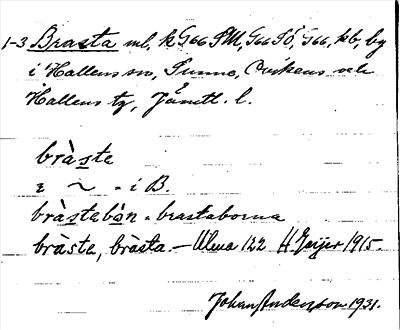 1-3 Brasta ml, k G66 SM, G66 SÖ, G66, kb, by
i Hallens sn, Sunne, Ovikens och
Hallens tg, Jämtl. l.
bràste
i ~ - i B.
bràstebòn - brastaborna
bràste, bràsta. - Ulma 122 H. Geijer 1915.
Johan Anderson 1931.